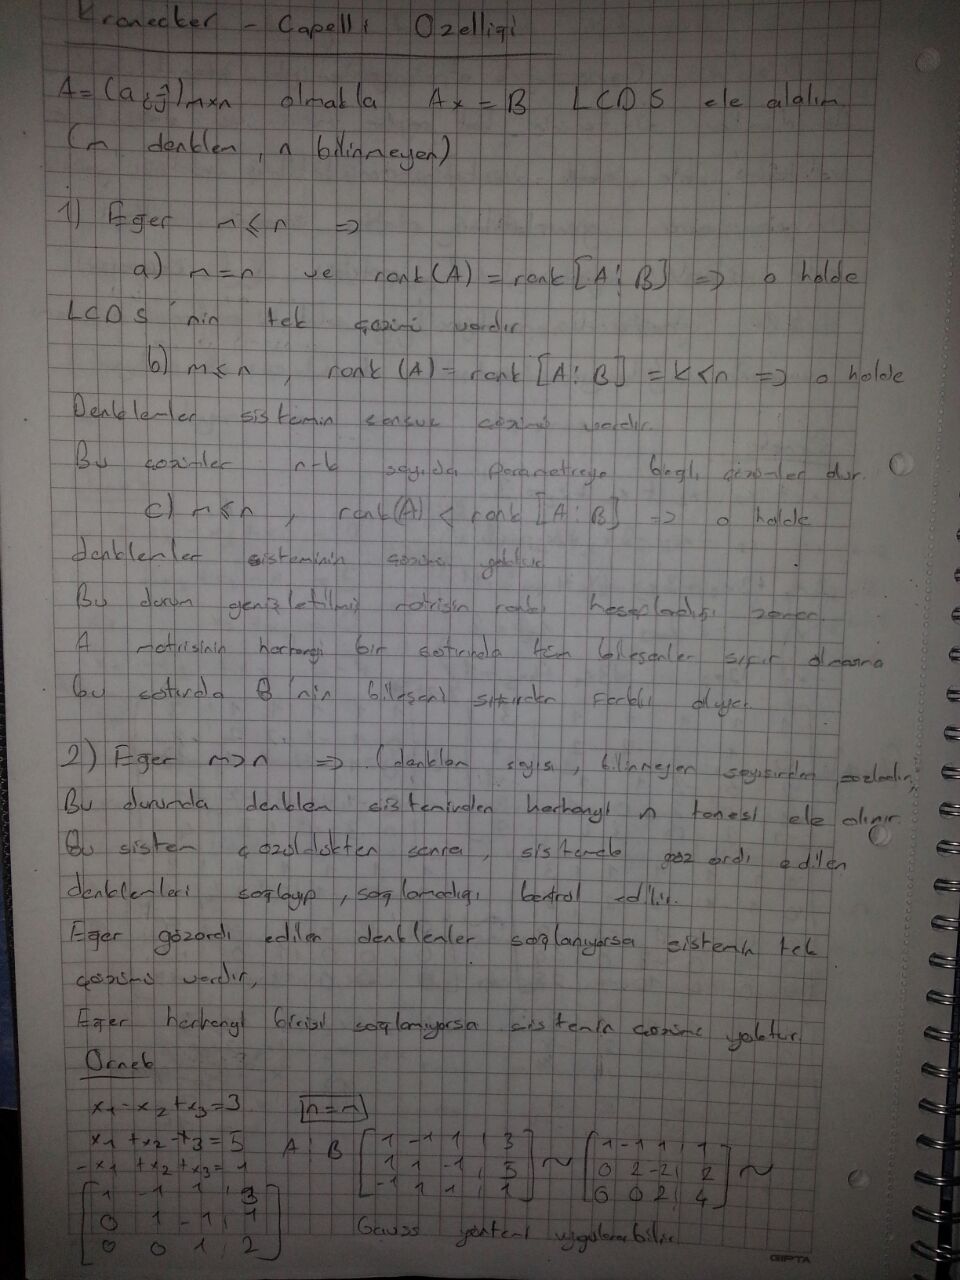 Kronecker - Capelli Ozelligi
A=(aij)mxn olmakla Ax=B LCDS ele alalım
(m denklem, n bilinmeyen)
1) Eger m≤n =>
a) m=n ve rank(A)=rank[A⋮B] => o halde
LCDS nin tek çözümü vardır
b) m≤n, rank(A)=rank[A⋮B]=k<n => o halde
Denklemler sistemin sonsuz çözümü vardır.
Bu çözümler n-k sayıda parametreye bağlı çözümler dur.
c) m≤n, rank(A) < rank[A⋮B] => o halde
denklemler sisteminin çözümü yoktur
Bu durum genişletilmiş matrisin rankı hesapladığı zaman
A matrisinin herhangi bir satırında tüm bileşenler sıfır olmasına
bu satırda B nin bileşeni sıfırdan farklı oluyor
2) Eger m>n => (denklem sayısı, bilinmeyen sayısından fazladır)
Bu durumda denklem sisteminden herhangi n tanesi ele alınır.
Bu sistem çözüldükten sonra, sistemde göz ardı edilen
denklemleri sağlayıp, sağlamadığı kontrol edilir.
Eger gözardı edilen denklemler sağlanıyorsa sistemin tek
çözümü vardır,
Eger herhangi birisi sağlamıyorsa sistemin çözümü yoktur.
Ornek
x1-x2+x3=3 m=n
x1+x2-x3=5 A⋮B [1 -1 1 ⋮ 3] ~ [1 -1 1 ⋮ 1] ~
-x1+x2+x3=1 [1 1 -1 ⋮ 5] [0 2 -2 ⋮ 2]
[-1 1 1 ⋮ 1] [0 0 2 ⋮ 4]
[1 -1 1 ⋮ 3]
[0 1 -1 ⋮ 1] Gauss yöntemi uygulanabilir.
[0 0 1 ⋮ 2]
GIPTA